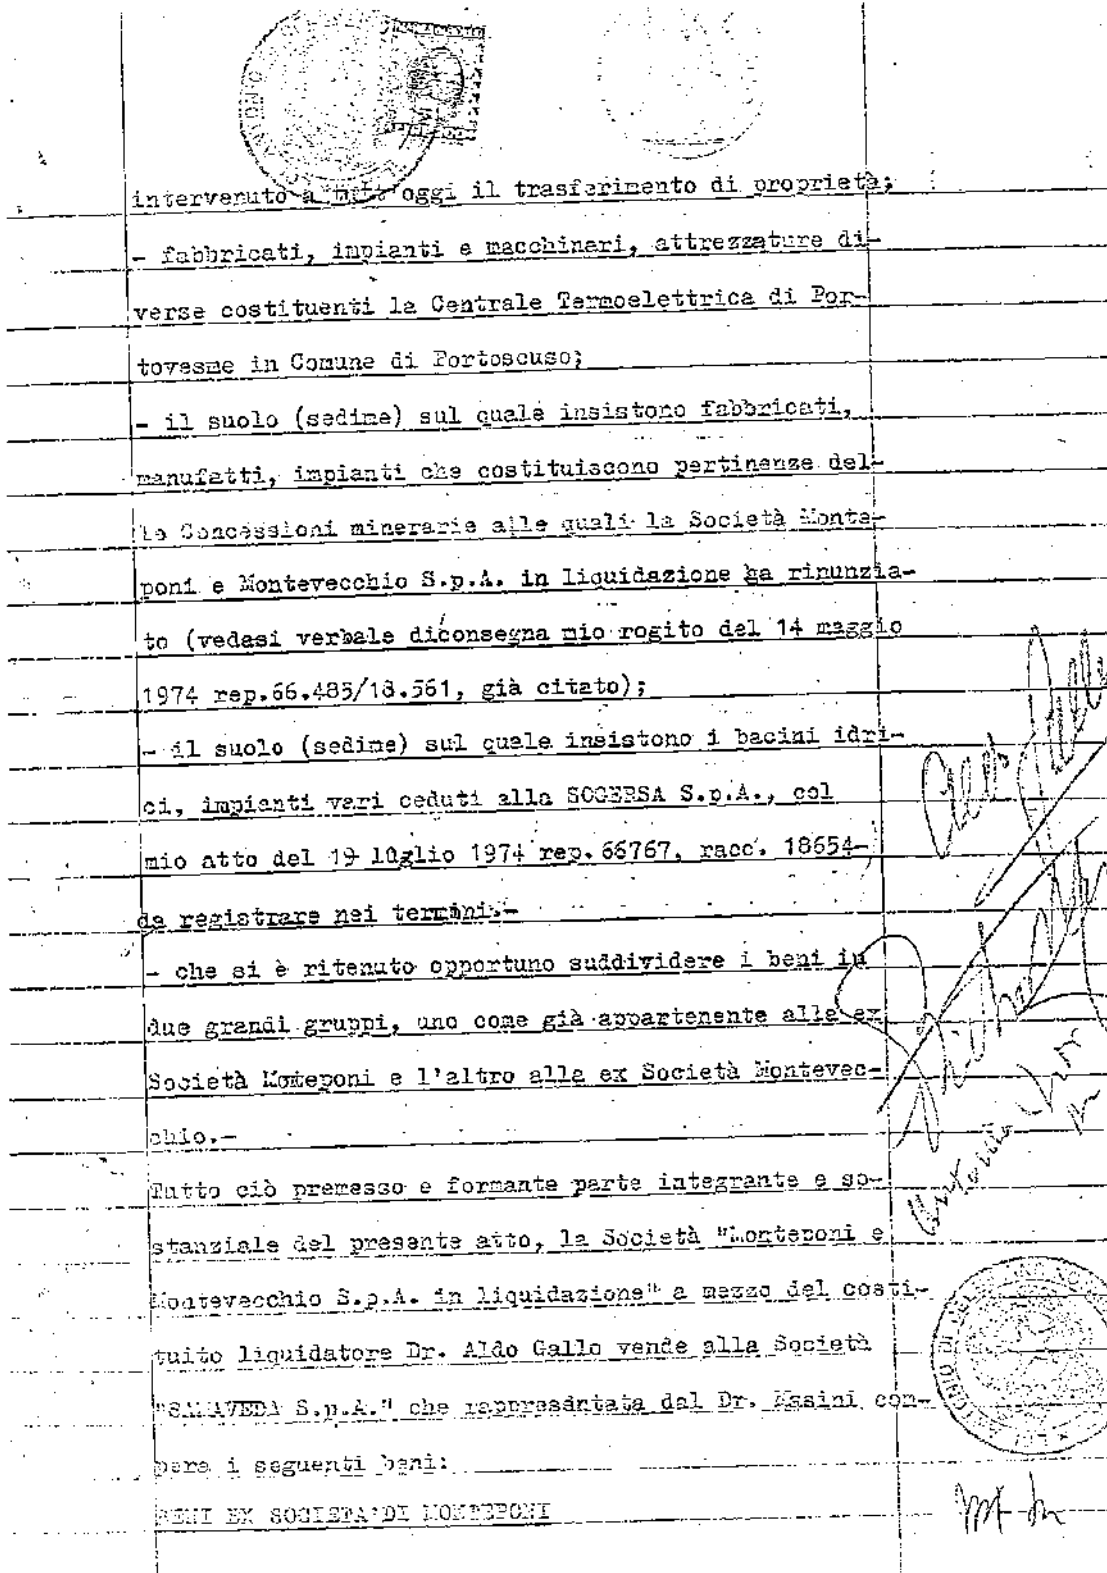 intervenuto a tutt'oggi il trasferimento di proprietà;
- fabbricati, impianti e macchinari, attrezzature di-
verse costituenti la Centrale Termoelettrica di Por-
tovesme in Comune di Portoscuso;
- il suolo (sedime) sul quale insistono fabbricati,
manufatti, impianti che costituiscono pertinenze del-
le Concessioni minerarie alle quali la Società Monte-
poni e Montevecchio S.p.A. in liquidazione ha rinunzia-
to (vedasi verbale diconsegna mio rogito del 14 maggio
1974 rep.66.485/18.561, già citato);
- il suolo (sedime) sul quale insistono i bacini idri-
ci, impianti vari ceduti alla SOGERSA S.p.A., col
mio atto del 19 luglio 1974 rep. 66767, racc. 18654-
da registrare nei termini.-
- che si è ritenuto opportuno suddividere i beni in
due grandi gruppi, uno come già appartenente alla ex
Società Monteponi e l'altro alla ex Società Montevec-
chio.-
Tutto ciò premesso e formante parte integrante e so-
stanziale del presente atto, la Società "Monteponi e
Montevecchio S.p.A. in liquidazione" a mezzo del costi-
tuito liquidatore Dr. Aldo Gallo vende alla Società
"SAMAVEDA S.p.A." che rappresentata dal Dr. Masini com-
pera i seguenti beni:
BENI EX SOCIETA' DI MONTEPONI